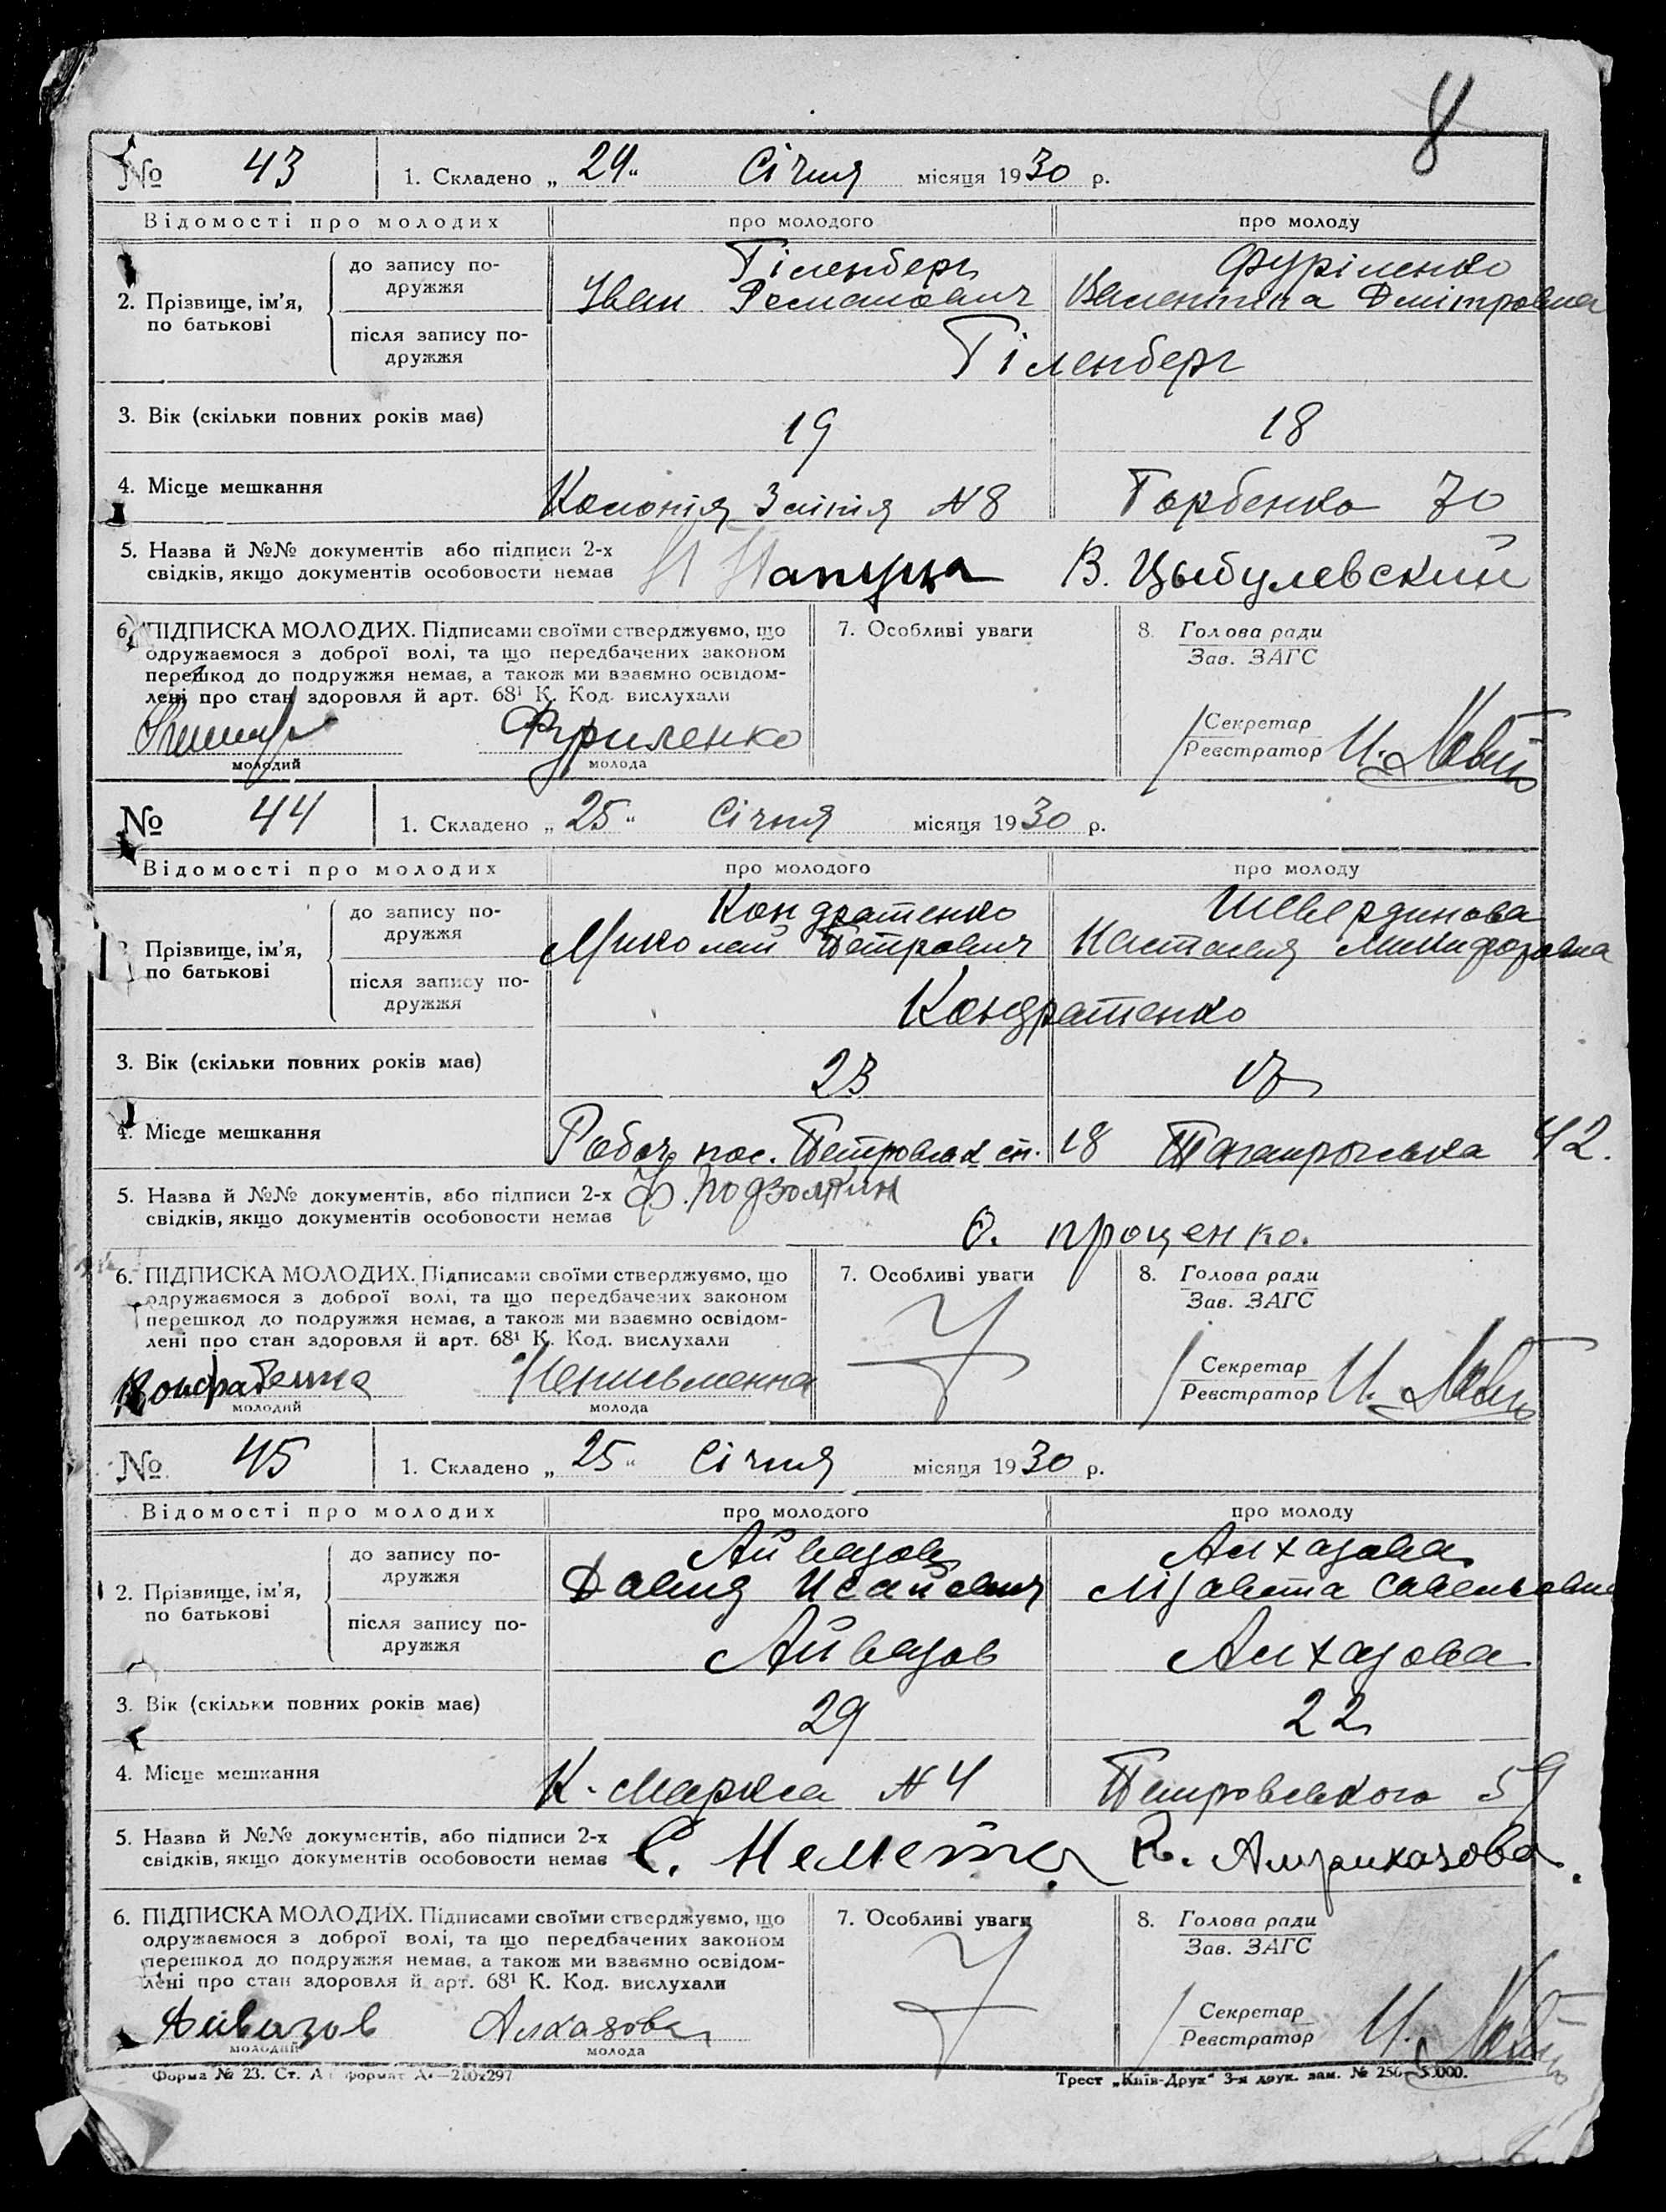 8
№ 43 1. Складено „ 24 “ Січня місяця 1930 р.
Відомості про молодих про молодого про молоду
2. Прізвище, ім’я, по батькові
до запису подружжя
Гіленберг Фуріленко
Іван Романович Валентина Дмітровна
після запису подружжя
Гіленберг
3. Вік (скільки повних років має) 19 18
4. Місце мешкання Колонія 3 лінія №8 Горбенко 70
5. Назва й №№ документів або підписи 2-х
свідків, якщо документів особовости немає В. Цыбулевский
6. ПІДПИСКА МОЛОДИХ. Підписами своїми стверджуємо, що
одружаємося з доброї волі, та що передбачених законом
перешкод до подружжя немає, а також ми взаємно освідом-
лені про стан здоров'я й арт. 68¹ К. Код. вислухали
Фуриленко
молодий молода
7. Особливі уваги
8. Голова ради
Зав. ЗАГС
Секретар
Реєстратор
№ 44 1. Складено „ 25 “ Січня місяця 1930 р.
Відомості про молодих про молодого про молоду
2. Прізвище, ім’я, по батькові
до запису подружжя
Кондратенко Шевердинова
Миколай Петрович Настасия Никифоровна
після запису подружжя
Кондратенко
3. Вік (скільки повних років має) 23 17
4. Місце мешкання Рабоч. пос. 18 Таганрогська 42.
5. Назва й №№ документів, або підписи 2-х
свідків, якщо документів особовости немає
О. проценко.
6. ПІДПИСКА МОЛОДИХ. Підписами своїми стверджуємо, що
одружаємося з доброї волі, та що передбачених законом
перешкод до подружжя немає, а також ми взаємно освідом-
лені про стан здоровля й арт. 68¹ К. Код. вислухали
Неписьменна
молодий молода
7. Особливі уваги
8. Голова ради
Зав. ЗАГС
Секретар
Реєстратор
№ 45 1. Складено „ 25 “ Січня місяця 1930 р.
Відомості про молодих про молодого про молоду
2. Прізвище, ім’я, по батькові
до запису подружжя
Айвазов Алхазова
Давид Исайович Лізавета Савельевна
після запису подружжя
Айвазов Алхазова
3. Вік (скільки повних років має) 29 22
4. Місце мешкання К. Маркса №4 Петровського 59
5. Назва й №№ документів, або підписи 2-х
свідків, якщо документів особовости немає
6. ПІДПИСКА МОЛОДИХ. Підписами своїми стверджуємо, що
одружаємося з доброї волі, та що передбачених законом
перешкод до подружжя немає, а також ми взаємно освідом-
лені про стан здоровля й арт. 68¹ К. Код. вислухали
Айвазов Алхазова
молодий молода
7. Особливі уваги
8. Голова ради
Зав. ЗАГС
Секретар
Реєстратор
Форма № 23. Ст. А формат А4—210х297 Трест „Київ-Друк“ 3-я друк. зам. № 256